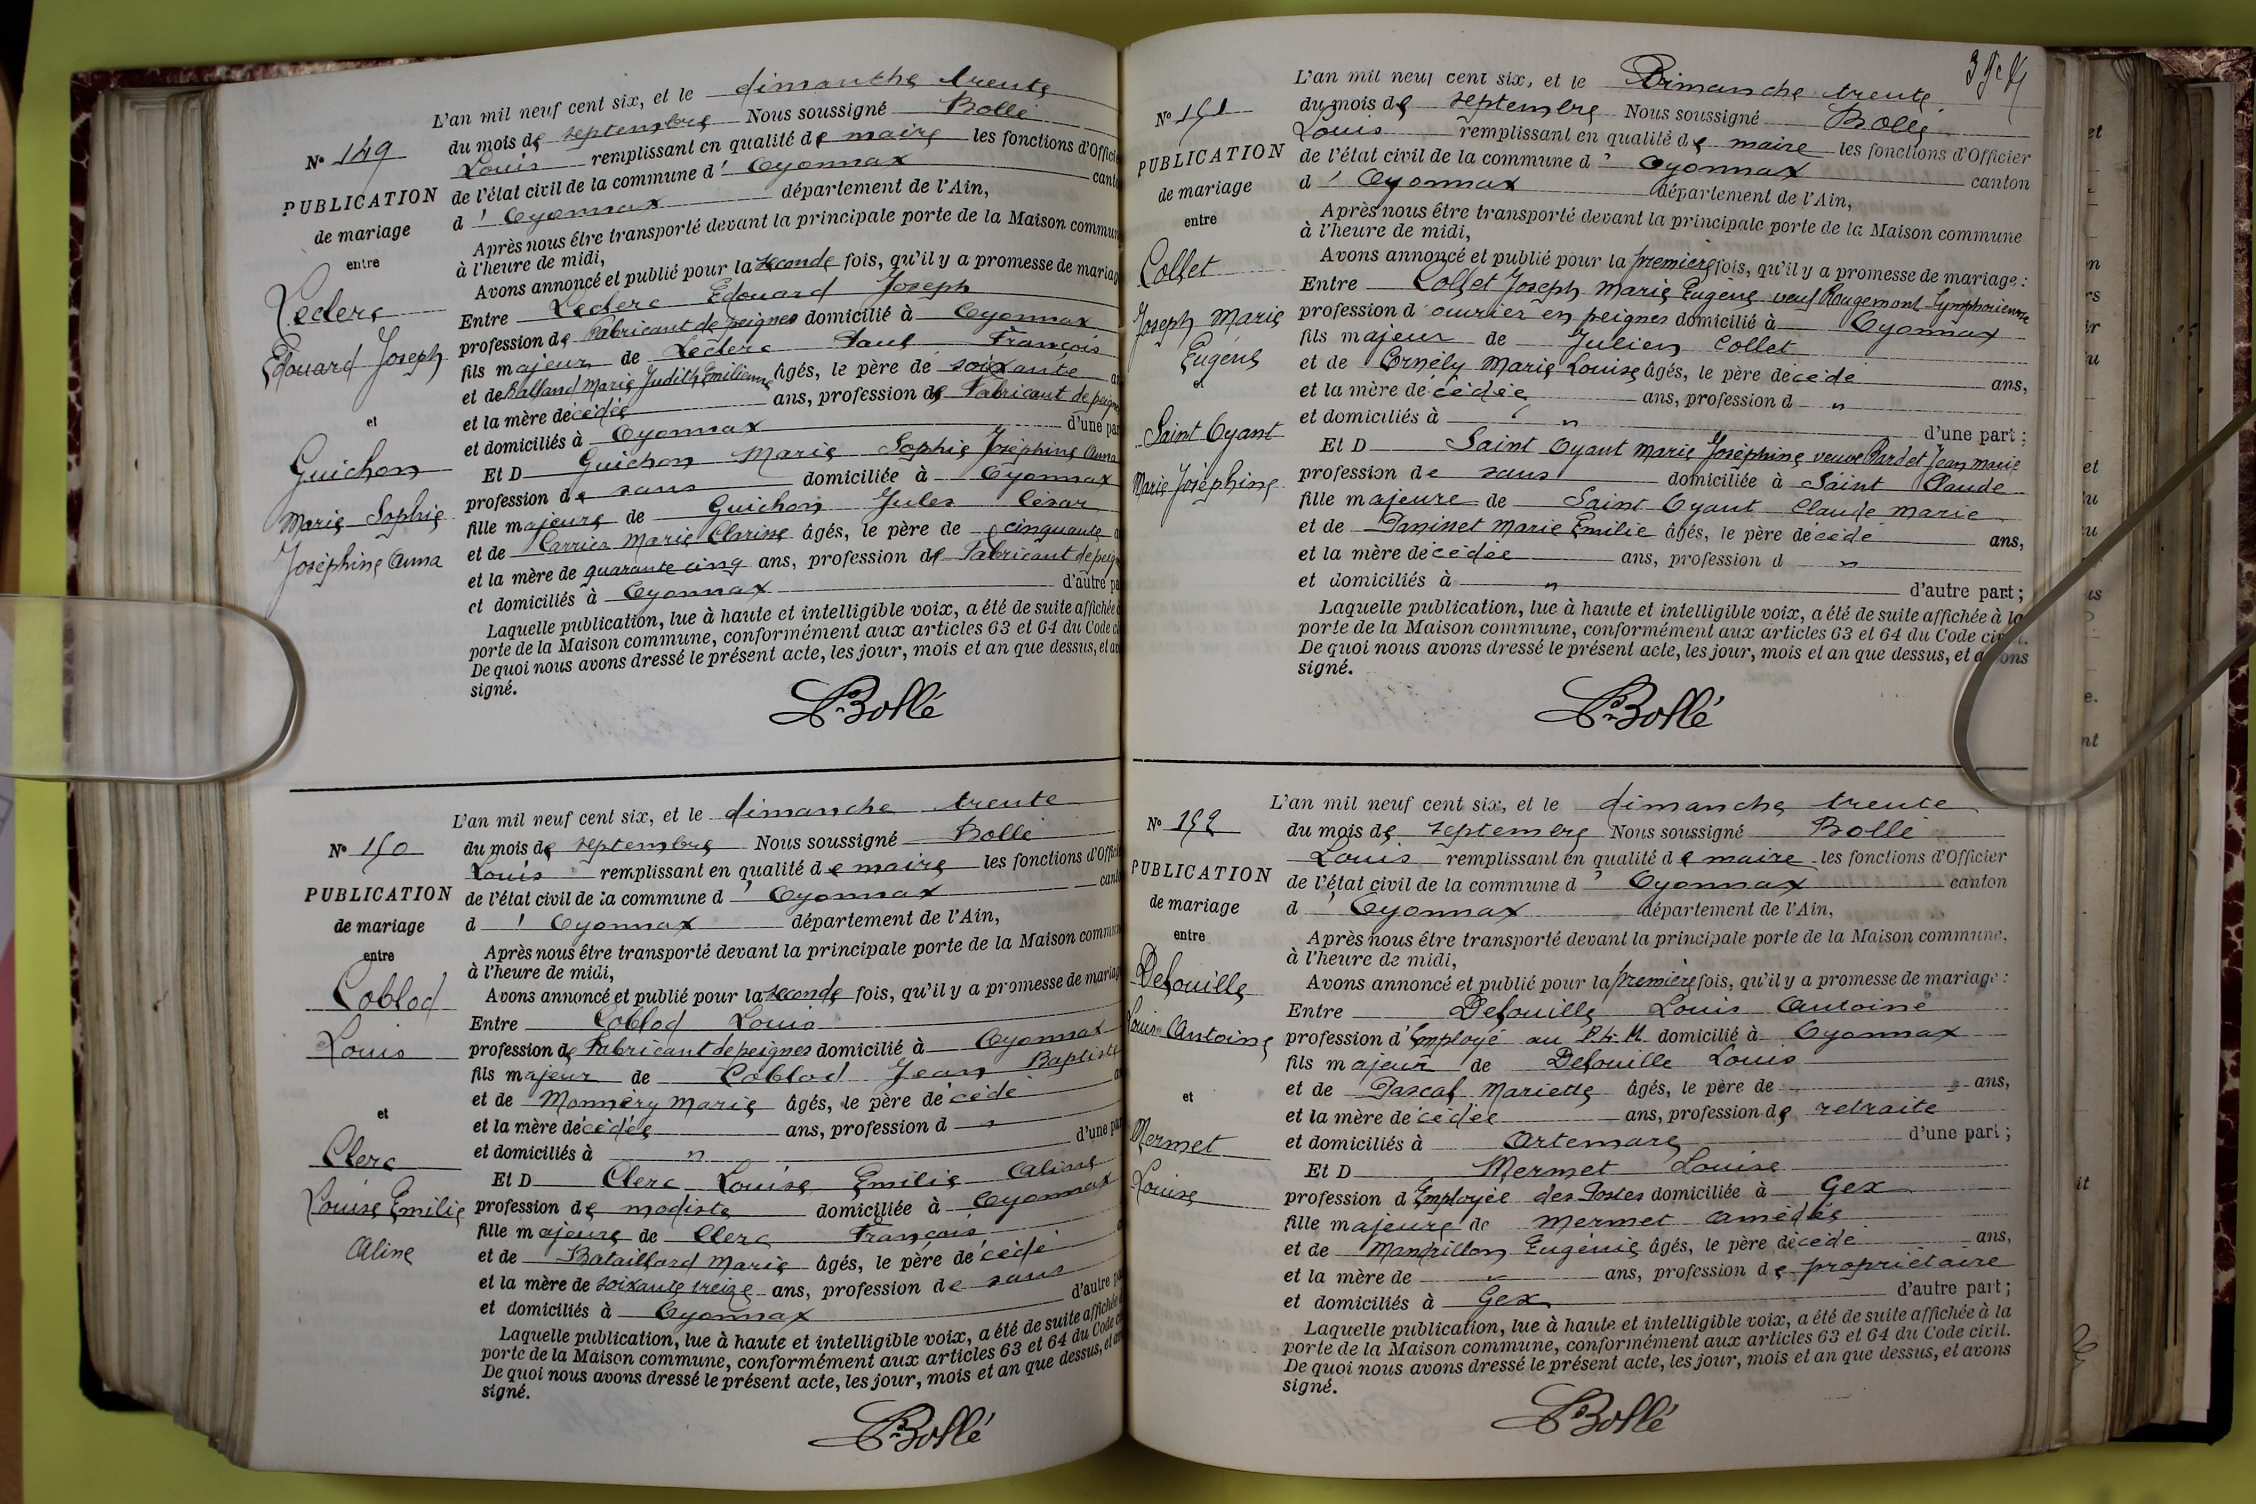 L'an mil neuf cent six, et le dimanche trente
du mois de septembre Nous soussigné Bollé
Louis remplissant en qualité de maire les fonctions d'Offici
de l'état civil de la commune d' Oyonnax cant
d' Oyonnax département de l'Ain,
Après nous être transporté devant la principale porte de la Maison commun
à l'heure de midi,
Avons annoncé et publié pour la seconde fois, qu'il y a promesse de mariag
Entre Leclerc Edouard Joseph
profession de Fabricant de peignes domicilié à Oyonnax
fils majeur de Leclerc Paul François
et de Balland Marie Judith Emilienne âgés, le père de soixante a
et la mère décédée ans, profession de Fabricant de peignes
et domiciliés à Oyonnax d'une par
Et D Guichon Marie Sophie Joséphine Anna
profession de sans domiciliée à Oyonnax
fille majeure de Guichon Jules César
et de Carrier Marie Clarisse âgés, le père de cinquante a
et la mère de quarante cinq ans, profession de Fabricant de peig
et domiciliés à Oyonnax d'autre pa
Laquelle publication, lue à haute et intelligible voix, a été de suite affichée à
porte de la Maison commune, conformément aux articles 63 et 64 du Code c
De quoi nous avons dressé le présent acte, les jour, mois et an que dessus, et av
signé.
L. Bollé
N° 149
PUBLICATION
de mariage
entre
Leclerc
Edouard Joseph
et
Guichon
Marie Sophie
Joséphine Anna
L'an mil neuf cent six, et le dimanche trente
du mois de septembre Nous soussigné Bollé
Louis remplissant en qualité de maire les fonctions d'Offici
de l'état civil de la commune d' Oyonnax cant
d' Oyonnax département de l'Ain,
Après nous être transporté devant la principale porte de la Maison commun
à l'heure de midi,
Avons annoncé et publié pour la seconde fois, qu'il y a promesse de mariag
Entre Coblod Louis
profession de Fabricant de peignes domicilié à Oyonnax
fils majeur de Coblod Jean Baptiste
et de Monnéry Marie âgés, le père décédé an
et la mère décédée ans, profession d "
et domiciliés à " d'une par
Et D Clerc Louise Emilie Aline
profession de modiste domiciliée à Oyonnax
fille majeure de Clerc François
et de Bataillard Marie âgés, le père décédé
et la mère de soixante treize ans, profession de sans
et domiciliés à Oyonnax d'autre pa
Laquelle publication, lue à haute et intelligible voix, a été de suite affichée à
porte de la Maison commune, conformément aux articles 63 et 64 du Code c
De quoi nous avons dressé le présent acte, les jour, mois et an que dessus, et av
signé.
L. Bollé
N° 150
PUBLICATION
de mariage
entre
Coblod
Louis
et
Clerc
Louise Emilie
Aline
L'an mil neuf cent six, et le Dimanche trente
du mois de septembre Nous soussigné Bollé
Louis remplissant en qualité de maire les fonctions d'Officier
de l'état civil de la commune d' Oyonnax canton
d' Oyonnax département de l'Ain,
Après nous être transporté devant la principale porte de la Maison commune
à l'heure de midi,
Avons annoncé et publié pour la première fois, qu'il y a promesse de mariage :
Entre Collet Joseph Marie Eugène veuf Rougemont Symphorienne
profession d'ouvrier en peignes domicilié à Oyonnax
fils majeur de Julien Collet
et de Cornély Marie Louise âgés, le père décédé ans,
et la mère décédée ans, profession d "
et domiciliés à " d'une part ;
Et D Saint Oyant Marie Joséphine veuve Pardet Jean Marie
profession de sans domiciliée à Saint Claude
fille majeure de Saint Oyant Claude Marie
et de Paninet Marie Emilie âgés, le père décédé ans,
et la mère décédée ans, profession d "
et domiciliés à " d'autre part ;
Laquelle publication, lue à haute et intelligible voix, a été de suite affichée à la
porte de la Maison commune, conformément aux articles 63 et 64 du Code civil.
De quoi nous avons dressé le présent acte, les jour, mois et an que dessus, et avons
signé.
L. Bollé
N° 151
PUBLICATION
de mariage
entre
Collet
Joseph Marie
Eugène
et
Saint Oyant
Marie Joséphine
L'an mil neuf cent six, et le dimanche trente
du mois de septembre Nous soussigné Bollé
Louis remplissant en qualité de maire les fonctions d'Officier
de l'état civil de la commune d' Oyonnax canton
d' Oyonnax département de l'Ain,
Après nous être transporté devant la principale porte de la Maison commune,
à l'heure de midi,
Avons annoncé et publié pour la première fois, qu'il y a promesse de mariage :
Entre Defouille Louis Antoine
profession d'Employé au P.L.M. domicilié à Oyonnax
fils majeur de Defouille Louis
et de Pascal Mariette âgés, le père de " ans,
et la mère décédée ans, profession de retraité
et domiciliés à Artemare d'une part ;
Et D Mermet Louise
profession d'Employée des Postes domiciliée à Gex
fille majeure de Mermet Amédée
et de Mandrillon Eugénie âgés, le père décédé ans,
et la mère de " ans, profession de propriétaire
et domiciliés à Gex d'autre part ;
Laquelle publication, lue à haute et intelligible voix, a été de suite affichée à la
porte de la Maison commune, conformément aux articles 63 et 64 du Code civil.
De quoi nous avons dressé le présent acte, les jour, mois et an que dessus, et avons
signé.
L. Bollé
N° 152
PUBLICATION
de mariage
entre
Defouille
Louis Antoine
et
Mermet
Louise